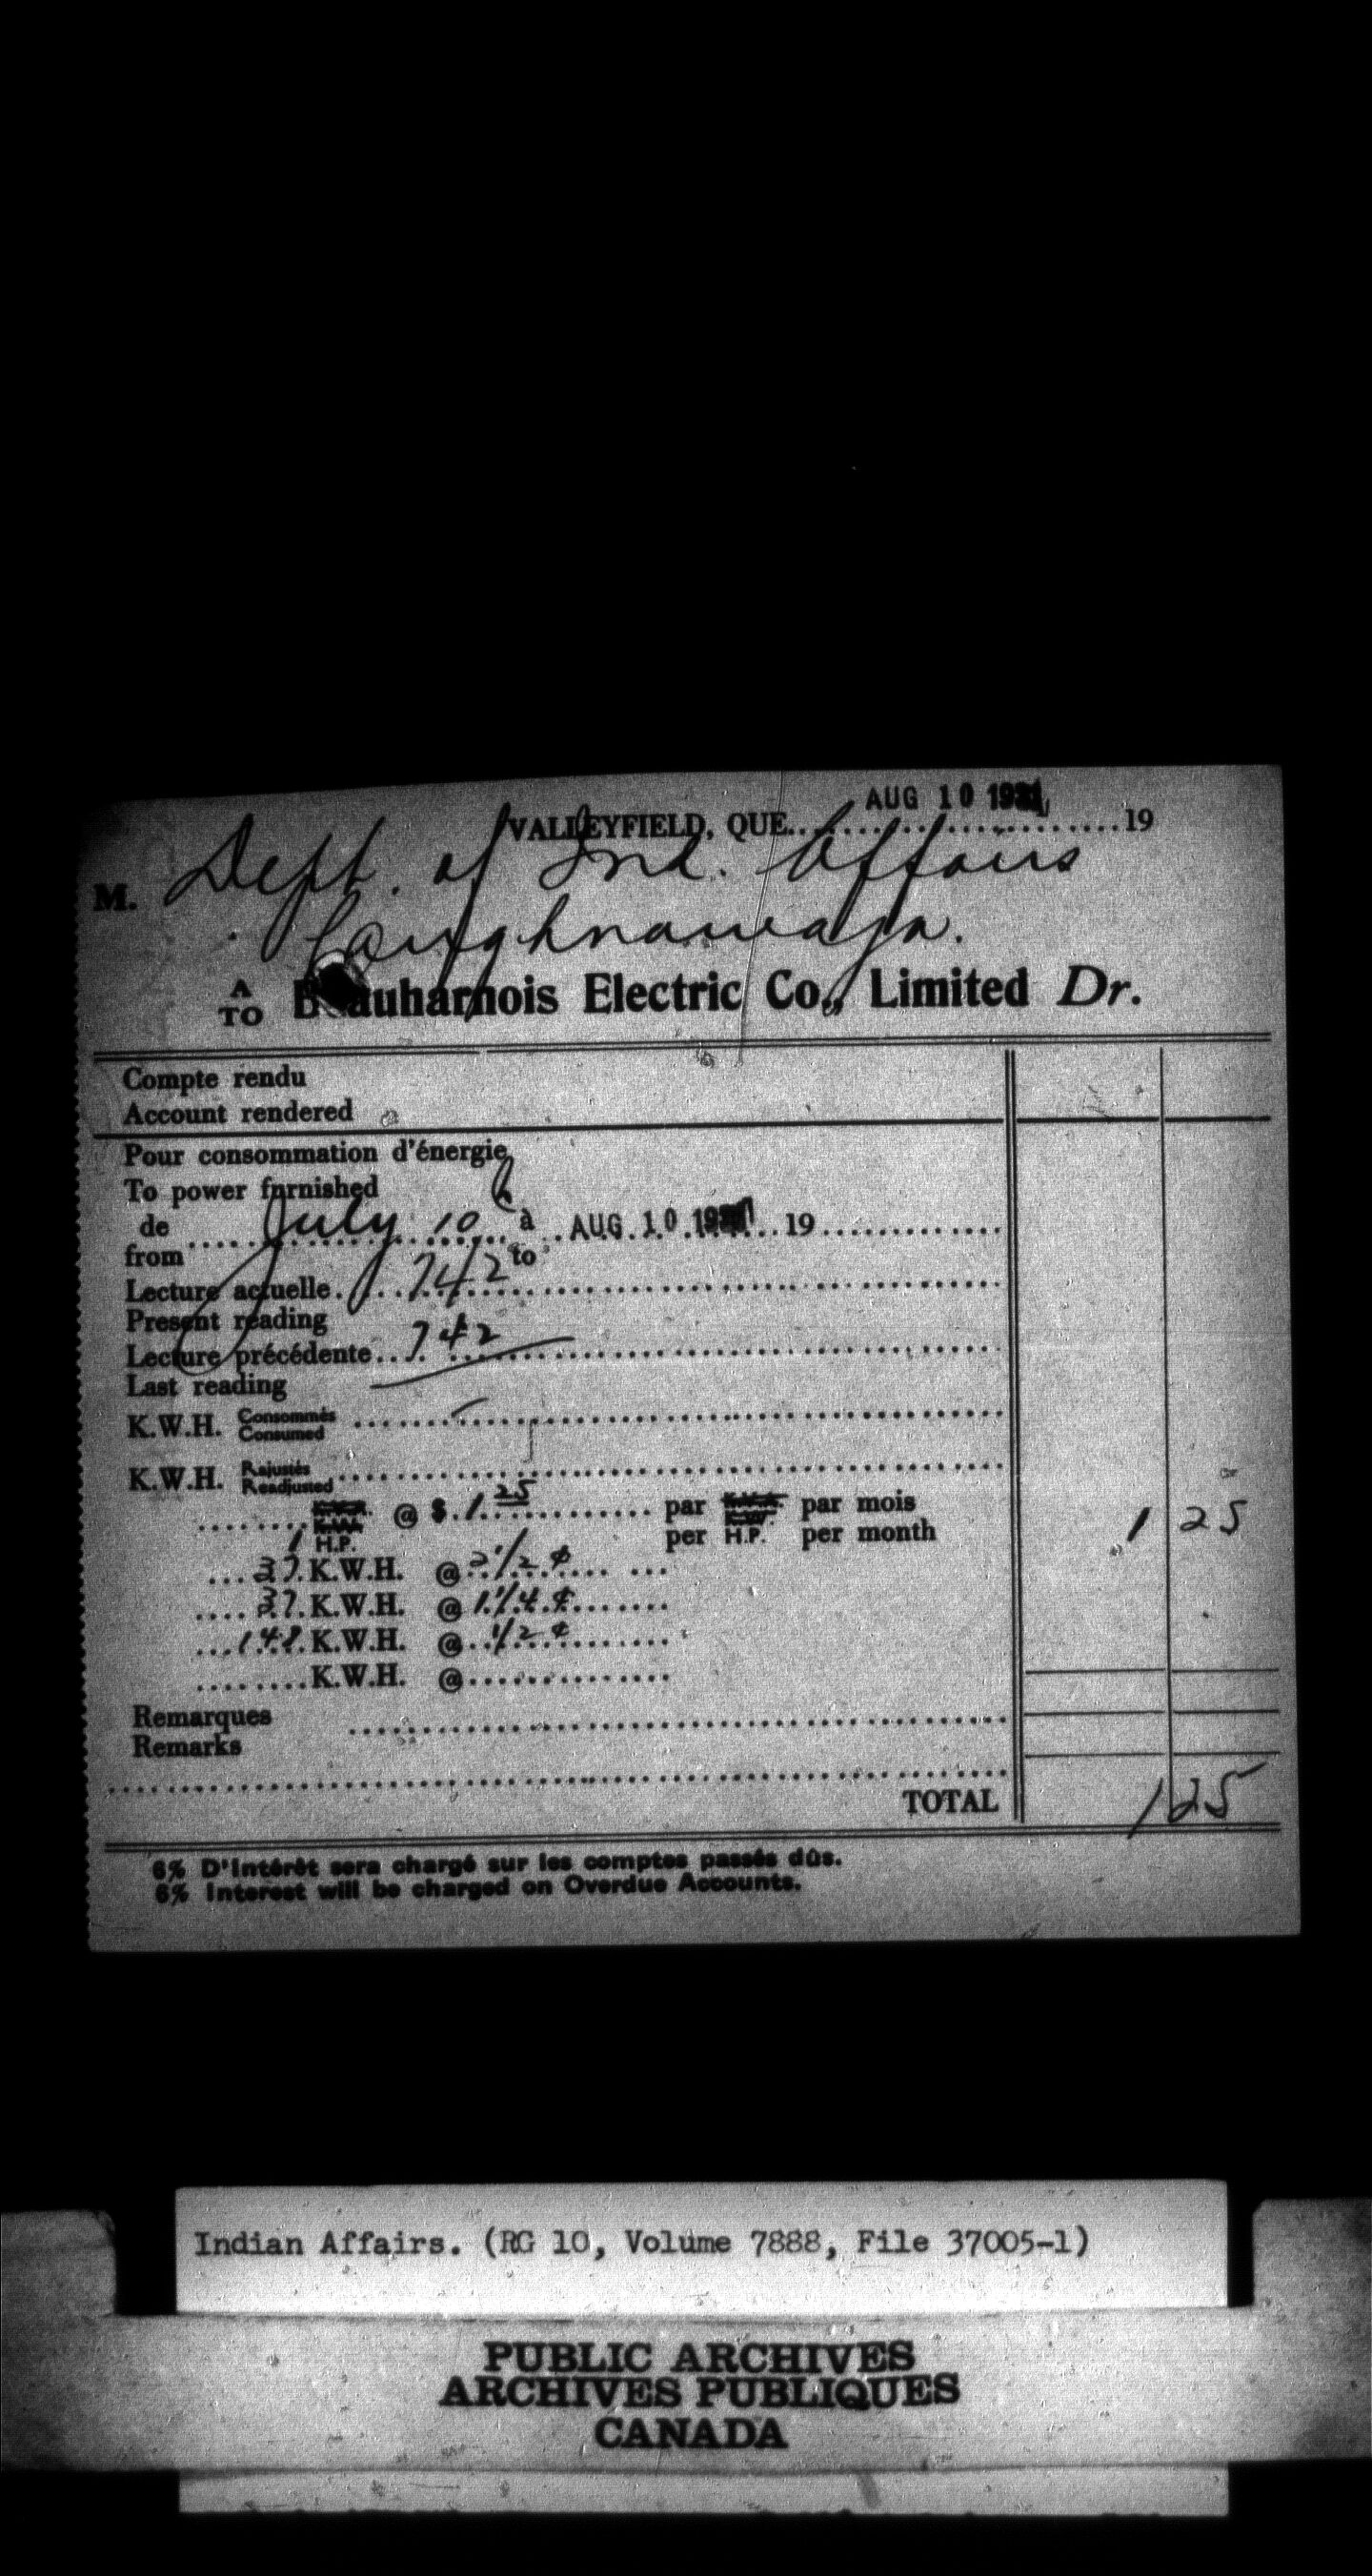 VALLEYFIELD, QUE. AUG 10 19 19
M. Dept. of Ind. Affairs
Caughnawaga.
A
TO Beauharnois Electric Co., Limited Dr.
Compte rendu
Account rendered
Pour consommation d'énergie
To power furnished
de July 10 à AUG 10 19 19
from to
Lecture actuelle 742
Present reading
Lecture précédente 742
Last reading
K.W.H. Consommés
Consumed
K.W.H. Rajustés
Readjusted
@ $ 1.25 par par mois
1 H.P. per H.P. per month 1 25
37 K.W.H. @ 2 1/2 ¢
37 K.W.H. @ 1 1/4 ¢
148 K.W.H. @ 1/2 ¢
K.W.H. @
Remarques
Remarks
TOTAL 1 25
6% D'Intérêt sera chargé sur les comptes passés dûs.
6% Interest will be charged on Overdue Accounts.
Indian Affairs. (RG 10, Volume 7888, File 37005-1)
PUBLIC ARCHIVES
ARCHIVES PUBLIQUES
CANADA